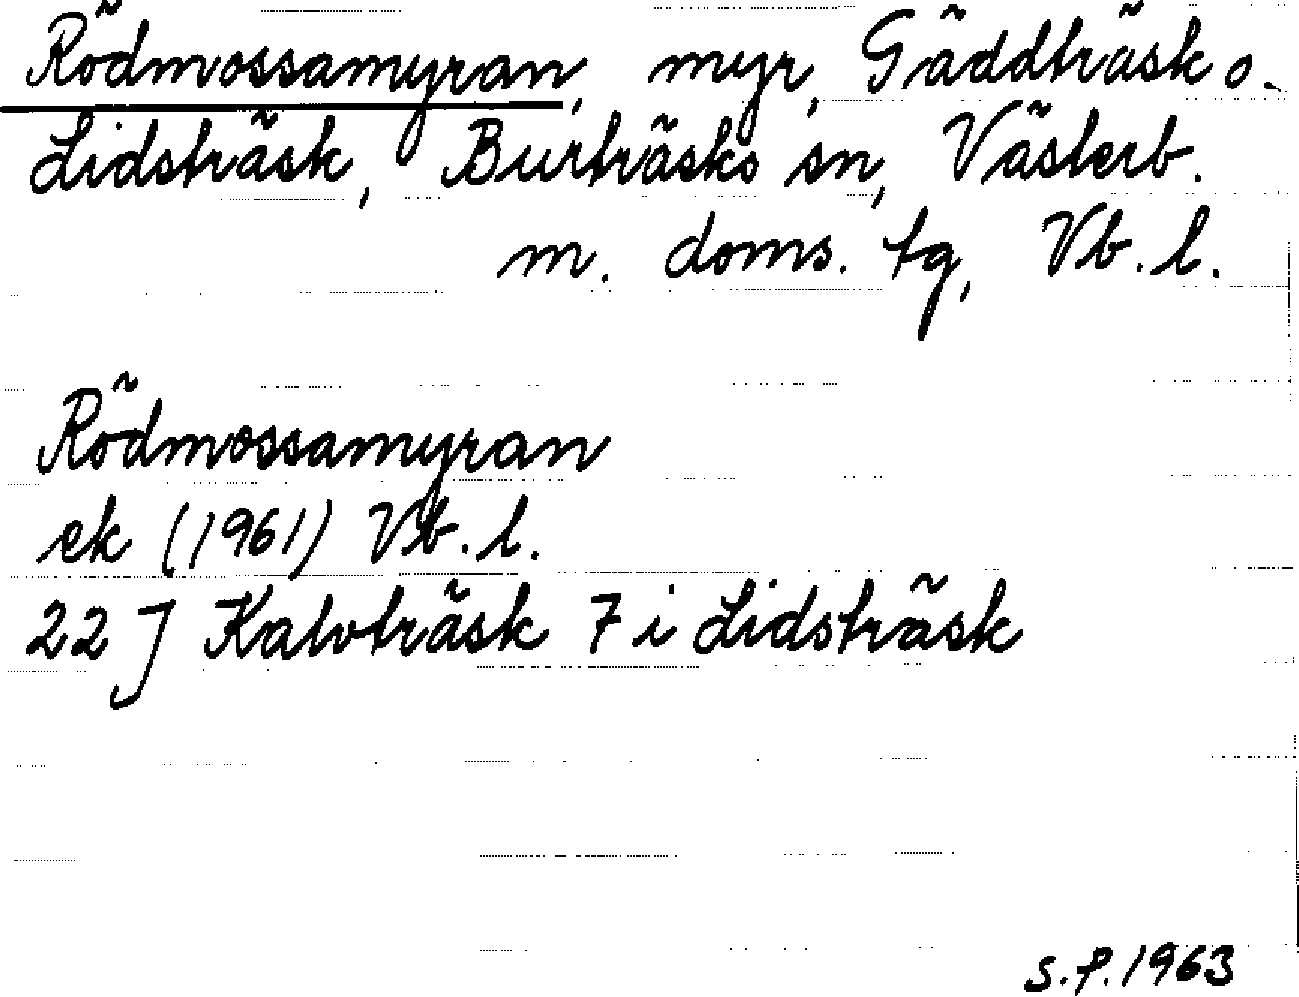 Rödmossamyran, myr, Gäddträsk o.
Lidsträsk, Burträsks sn, Västerb.
m. doms. tg, Vb. l.
Rödmossamyran
ek (1961) Vb. l.
22 J Kalvträsk 7 i Lidsträsk
S.P. 1963